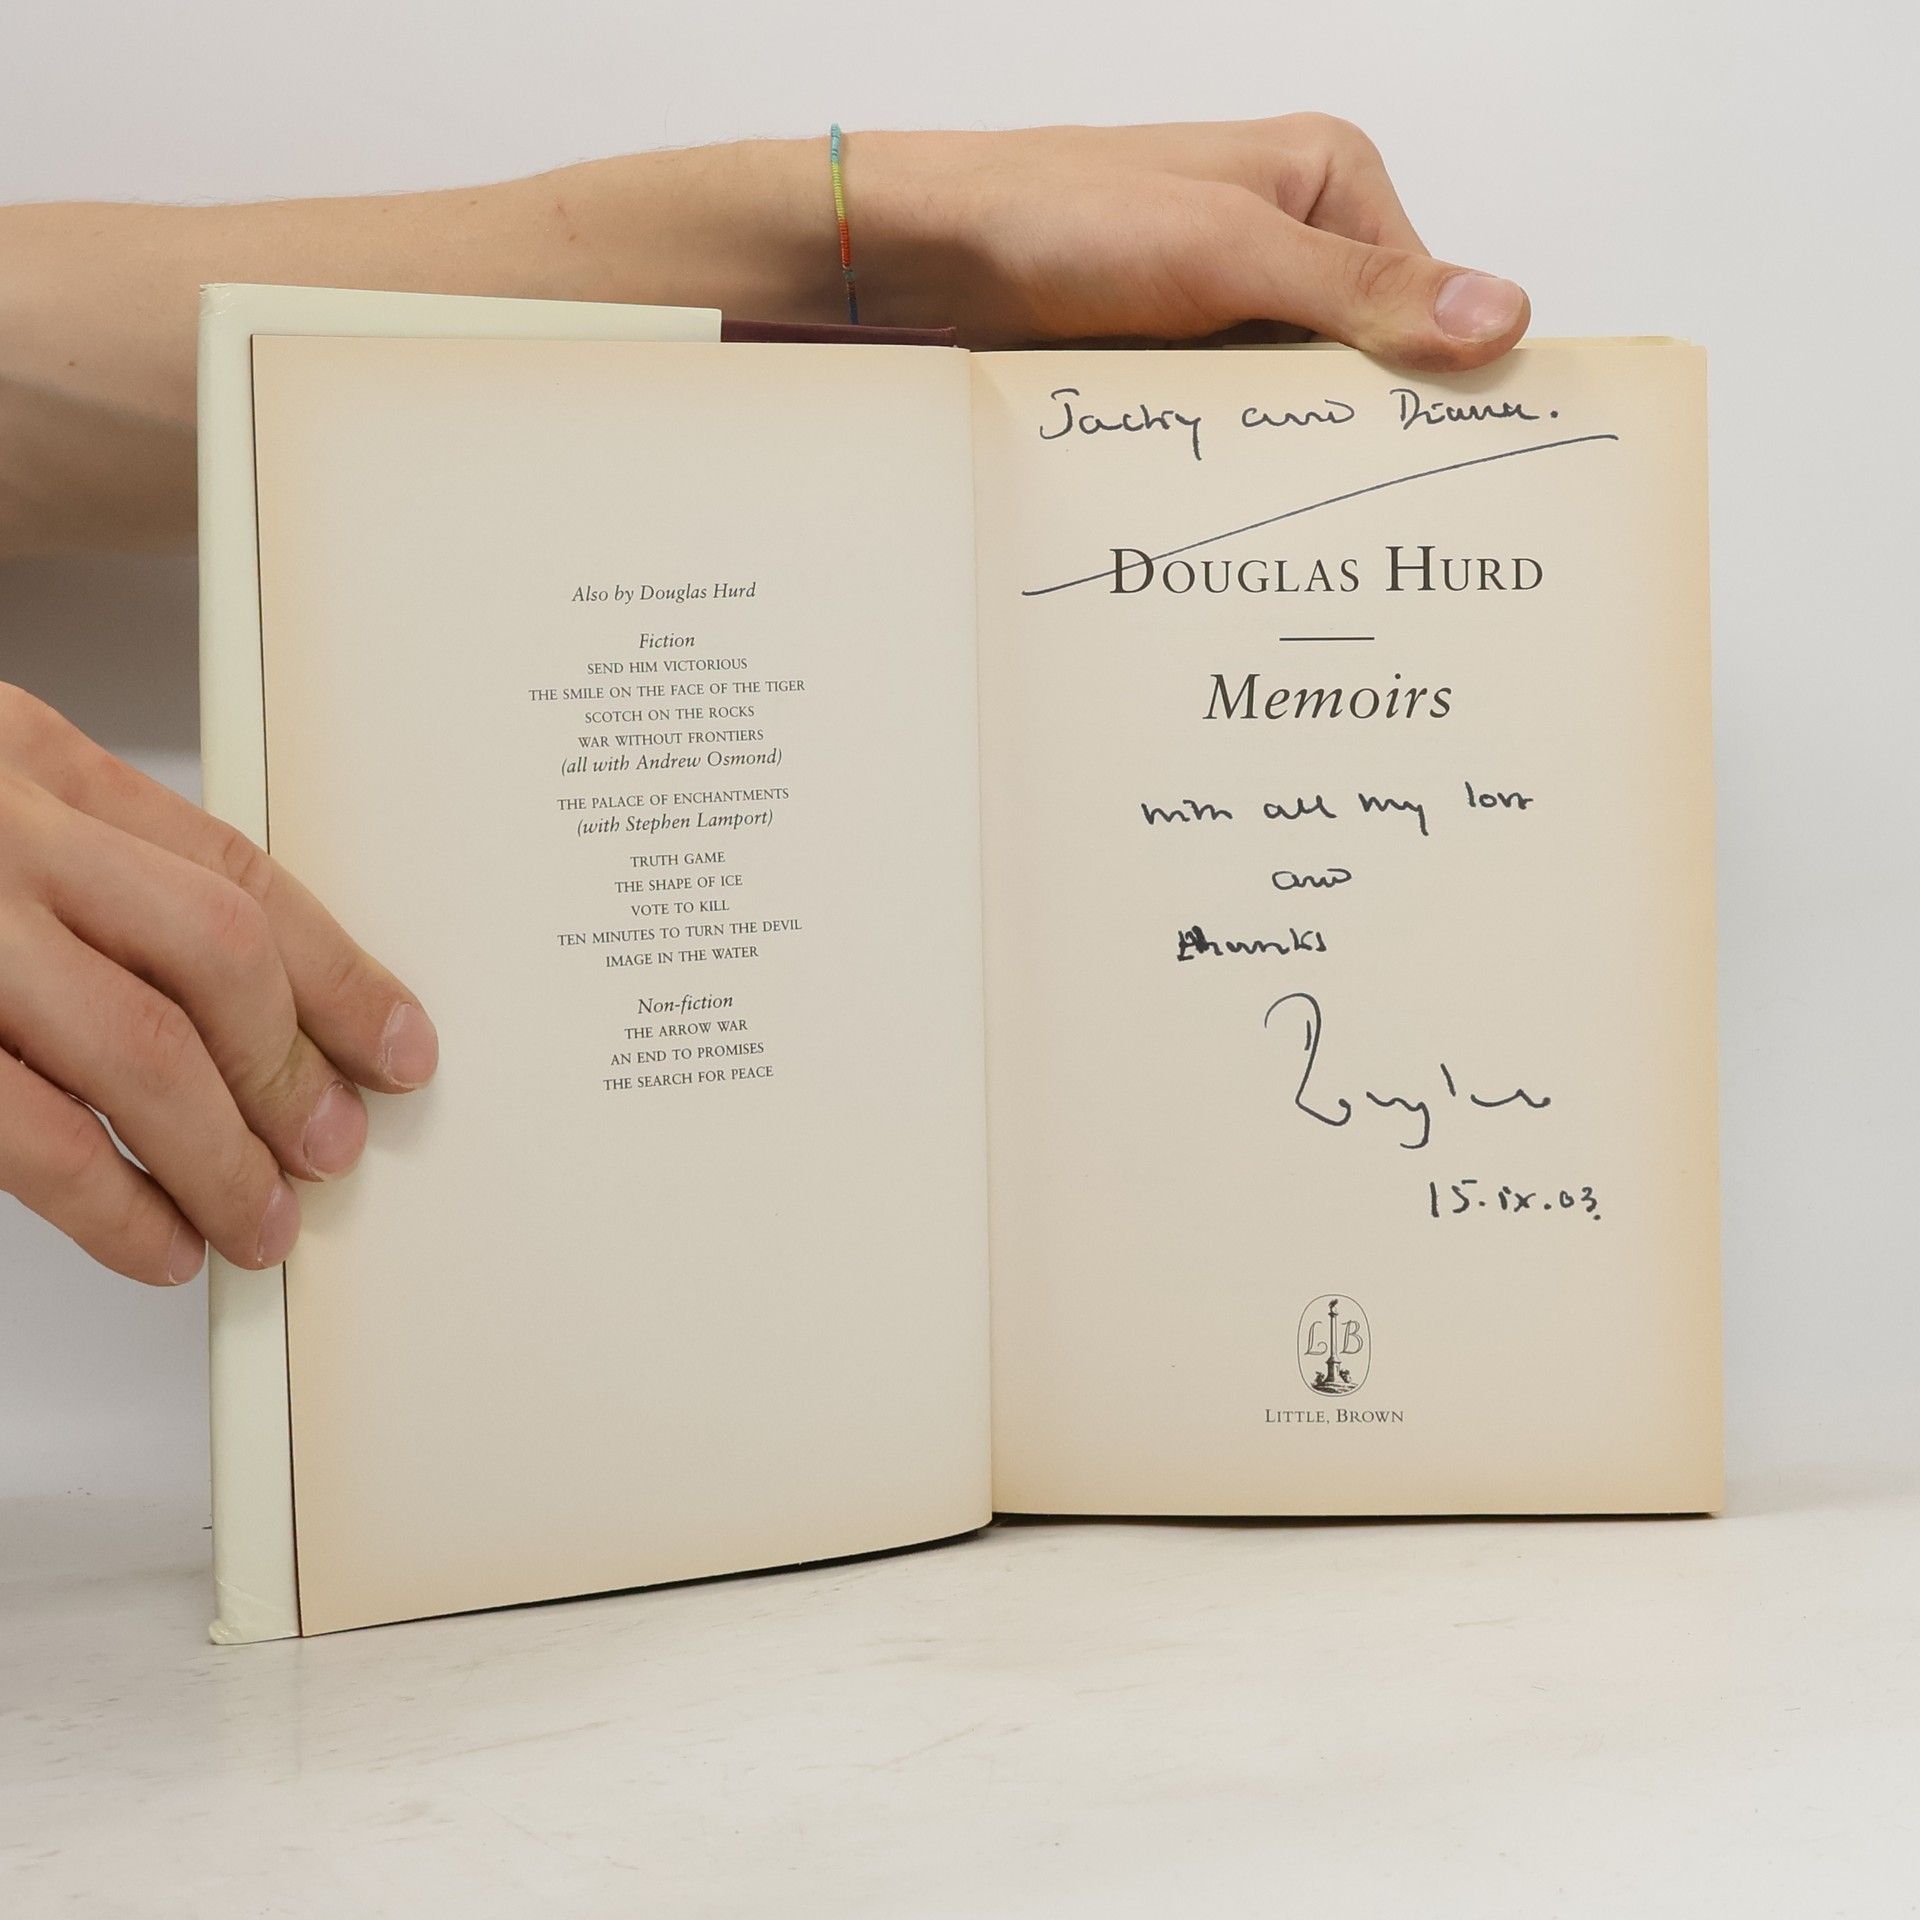 Also by Douglas Hurd
Fiction
SEND HIM VICTORIOUS
THE SMILE ON THE FACE OF THE TIGER
SCOTCH ON THE ROCKS
WAR WITHOUT FRONTIERS
(all with Andrew Osmond)
THE PALACE OF ENCHANTMENTS
(with Stephen Lamport)
TRUTH GAME
THE SHAPE OF ICE
VOTE TO KILL
TEN MINUTES TO TURN THE DEVIL
IMAGE IN THE WATER
Non-fiction
THE ARROW WAR
AN END TO PROMISES
THE SEARCH FOR PEACE
Jacky and Diana.
DOUGLAS HURD
Memoirs
with all my love
and
thanks
Douglas
15.ix.03.
L B
LITTLE, BROWN